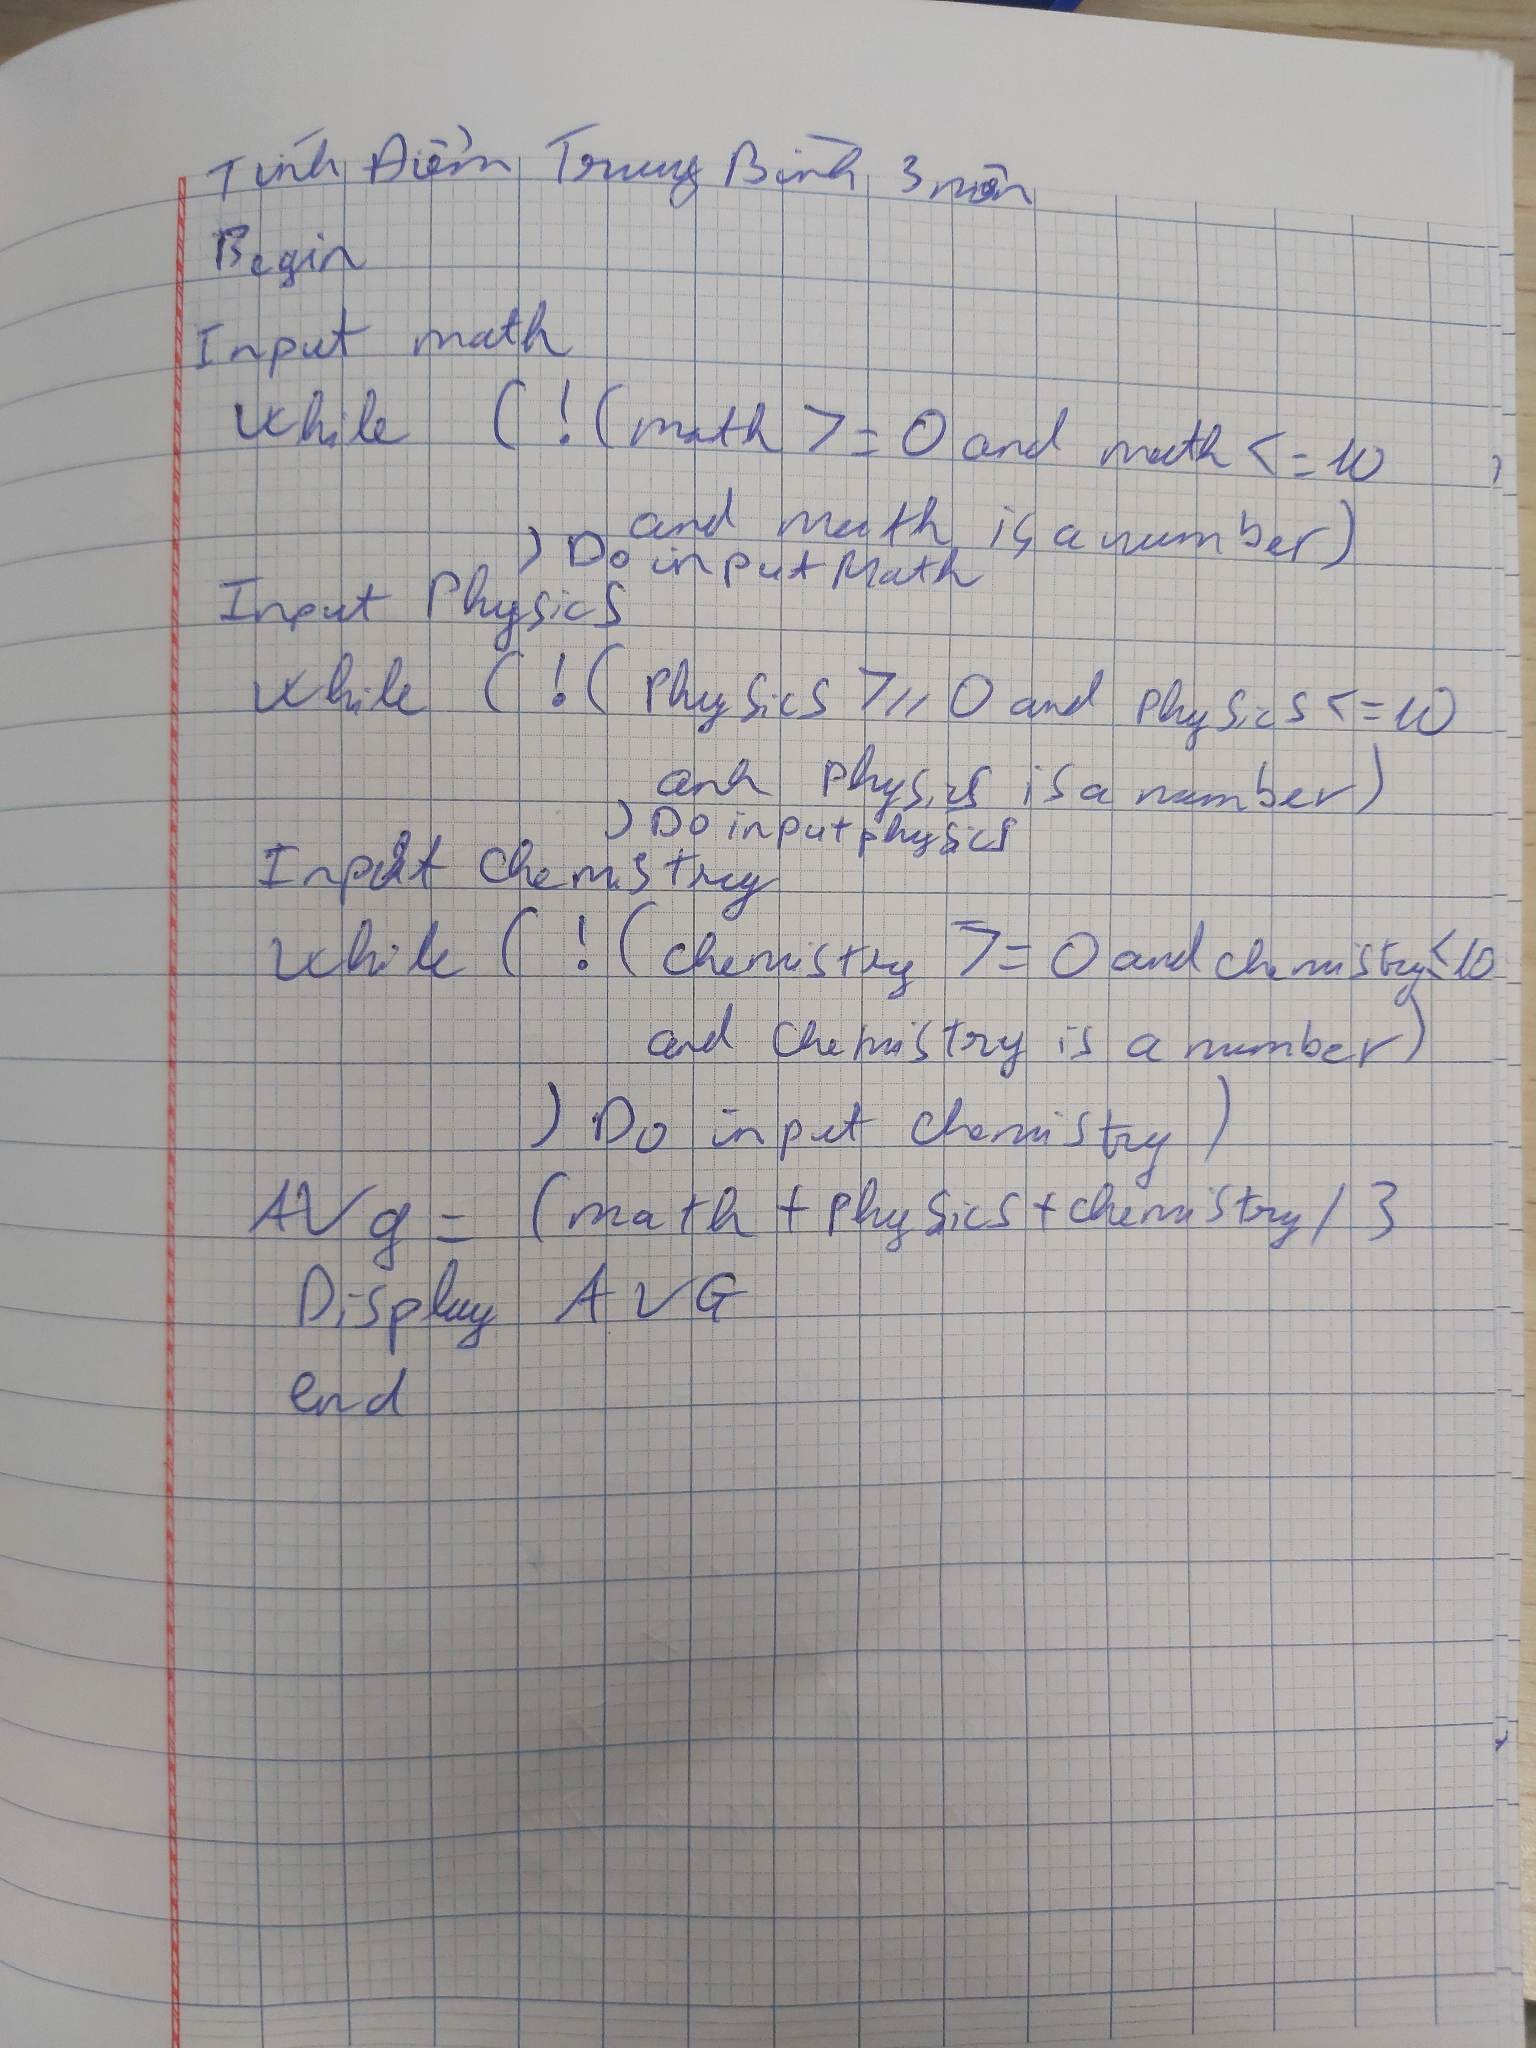 Tính Điểm Trung Bình 3 môn
Begin
Input math
While (!(math >= 0 and math <= 10
and math is a number)
) Do input Math
Input Physics
While (!(Physics >= 0 and physics <= 10
anh physics is a number)
) Do input physics
Input chemistry
While (!(chemistry >= 0 and chemistry <= 10
and chemistry is a number)
) Do input chemistry)
AVg = (math + physics + chemistry / 3
Display AVG
end